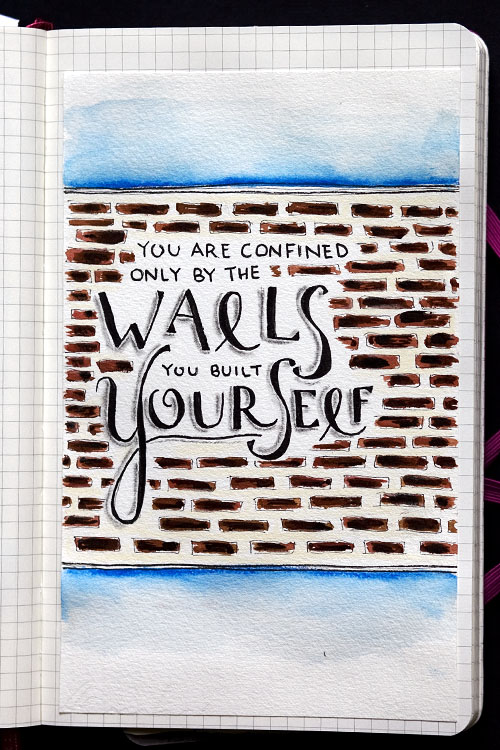 YOU ARE CONFINED
ONLY BY THE
WALLS
YOU BUILT
YOURSELF